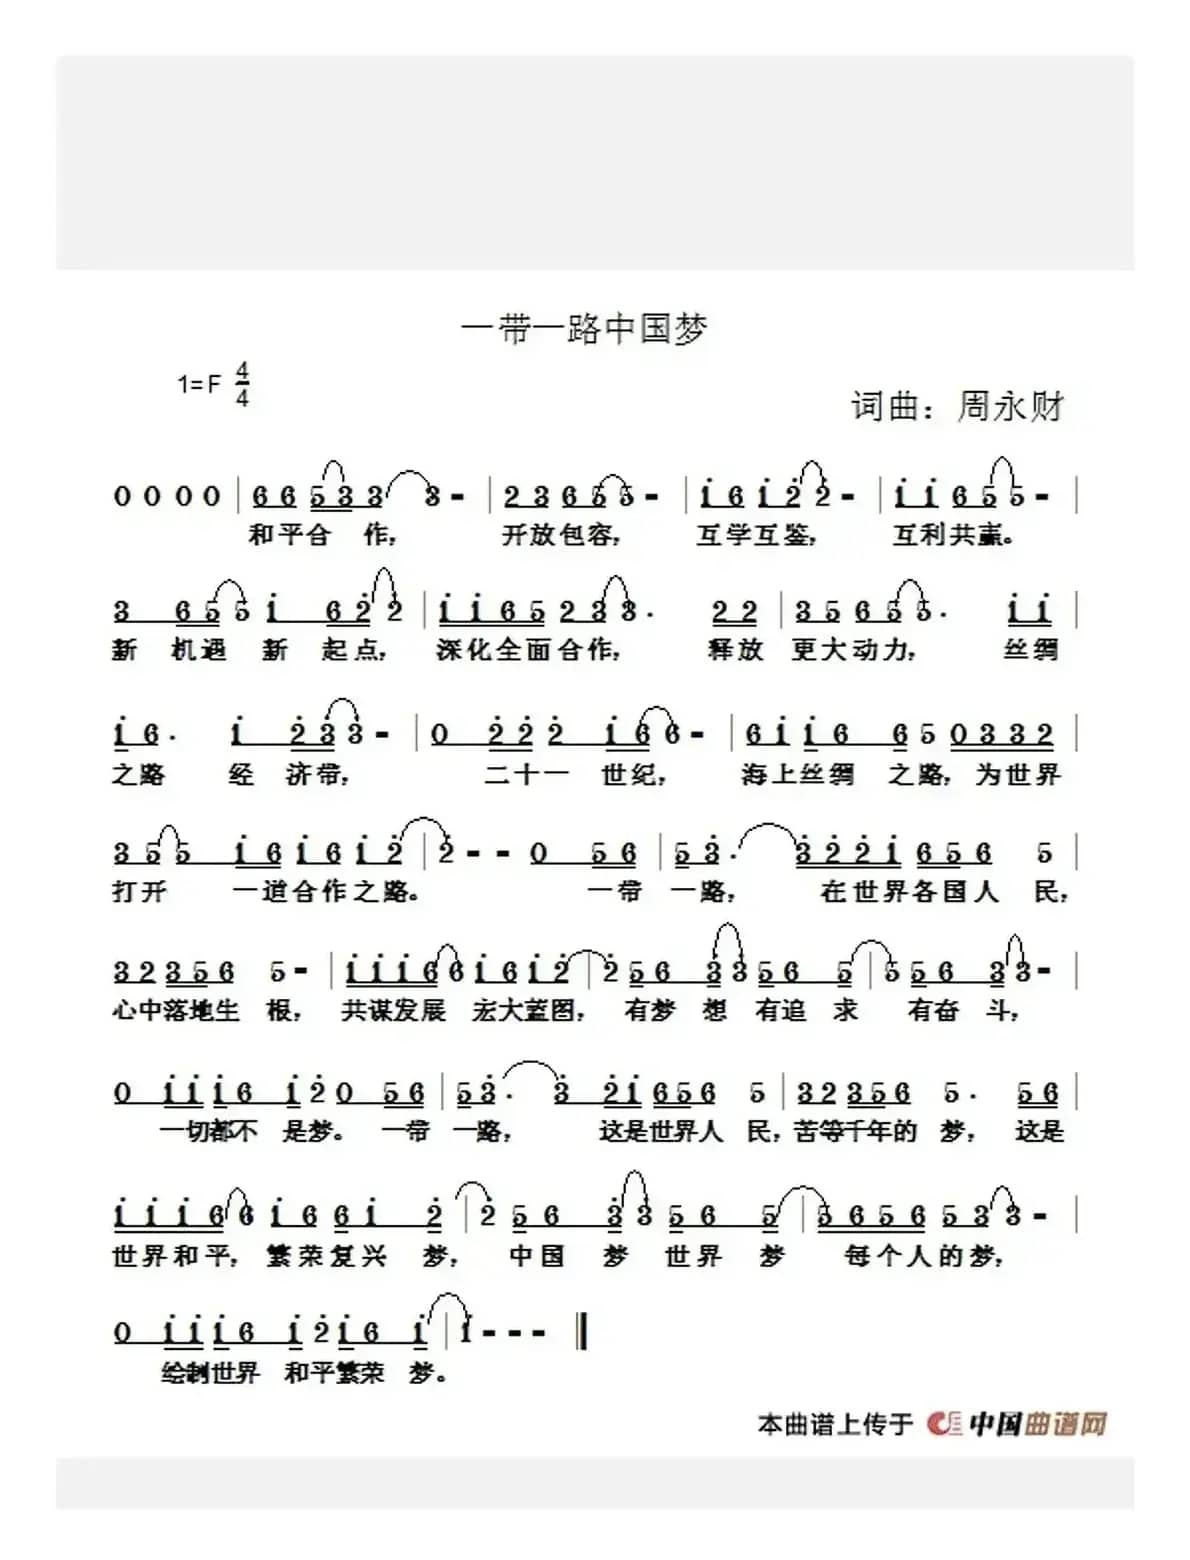 一带一路中国梦
1=F 4/4
词曲：周永财
0 0 0 0 | 6 6 5 3 3 3 - | 2 3 6 5 5 - | i 6 i 2 2 - | i i 6 5 5 - |
和平合 作， 开放包容， 互学互鉴， 互利共赢。
3 6 5 5 i 6 2 2 | i i 6 5 2 3 3 . 2 2 | 3 5 6 5 5 . i i |
新 机遇 新 起点， 深化全面合作， 释放 更大动力， 丝绸
i 6 . i 2 3 3 - | 0 2 2 2 i 6 6 - | 6 i i 6 6 5 0 3 3 2 |
之路 经 济带， 二十一 世纪， 海上丝绸 之路，为世界
3 5 5 i 6 i 6 i 2 | 2 - - 0 5 6 | 5 3 . 3 2 2 i 6 5 6 5 |
打开 一道合作之路。 一带 一路， 在世界各国人 民，
3 2 3 5 6 5 - | i i i 6 6 i 6 i 2 | 2 5 6 3 3 5 6 5 | 5 5 6 3 3 - |
心中落地生 根， 共谋发展 宏大蓝图， 有梦 想 有追 求 有奋 斗，
0 i i i 6 i 2 0 5 6 | 5 3 . 3 2 i 6 5 6 5 | 3 2 3 5 6 5 . 5 6 |
一切都不 是梦。 一带 一路， 这是世界人 民，苦等千年的 梦， 这是
i i i 6 6 i 6 6 i 2 | 2 5 6 3 3 5 6 5 | 5 6 5 6 5 3 3 - |
世界和平， 繁荣复兴 梦， 中国 梦 世界 梦 每个人的梦，
0 i i i 6 i 2 i 6 i | i - - - ‖
绘制世界 和平繁荣 梦。
本曲谱上传于 中国曲谱网